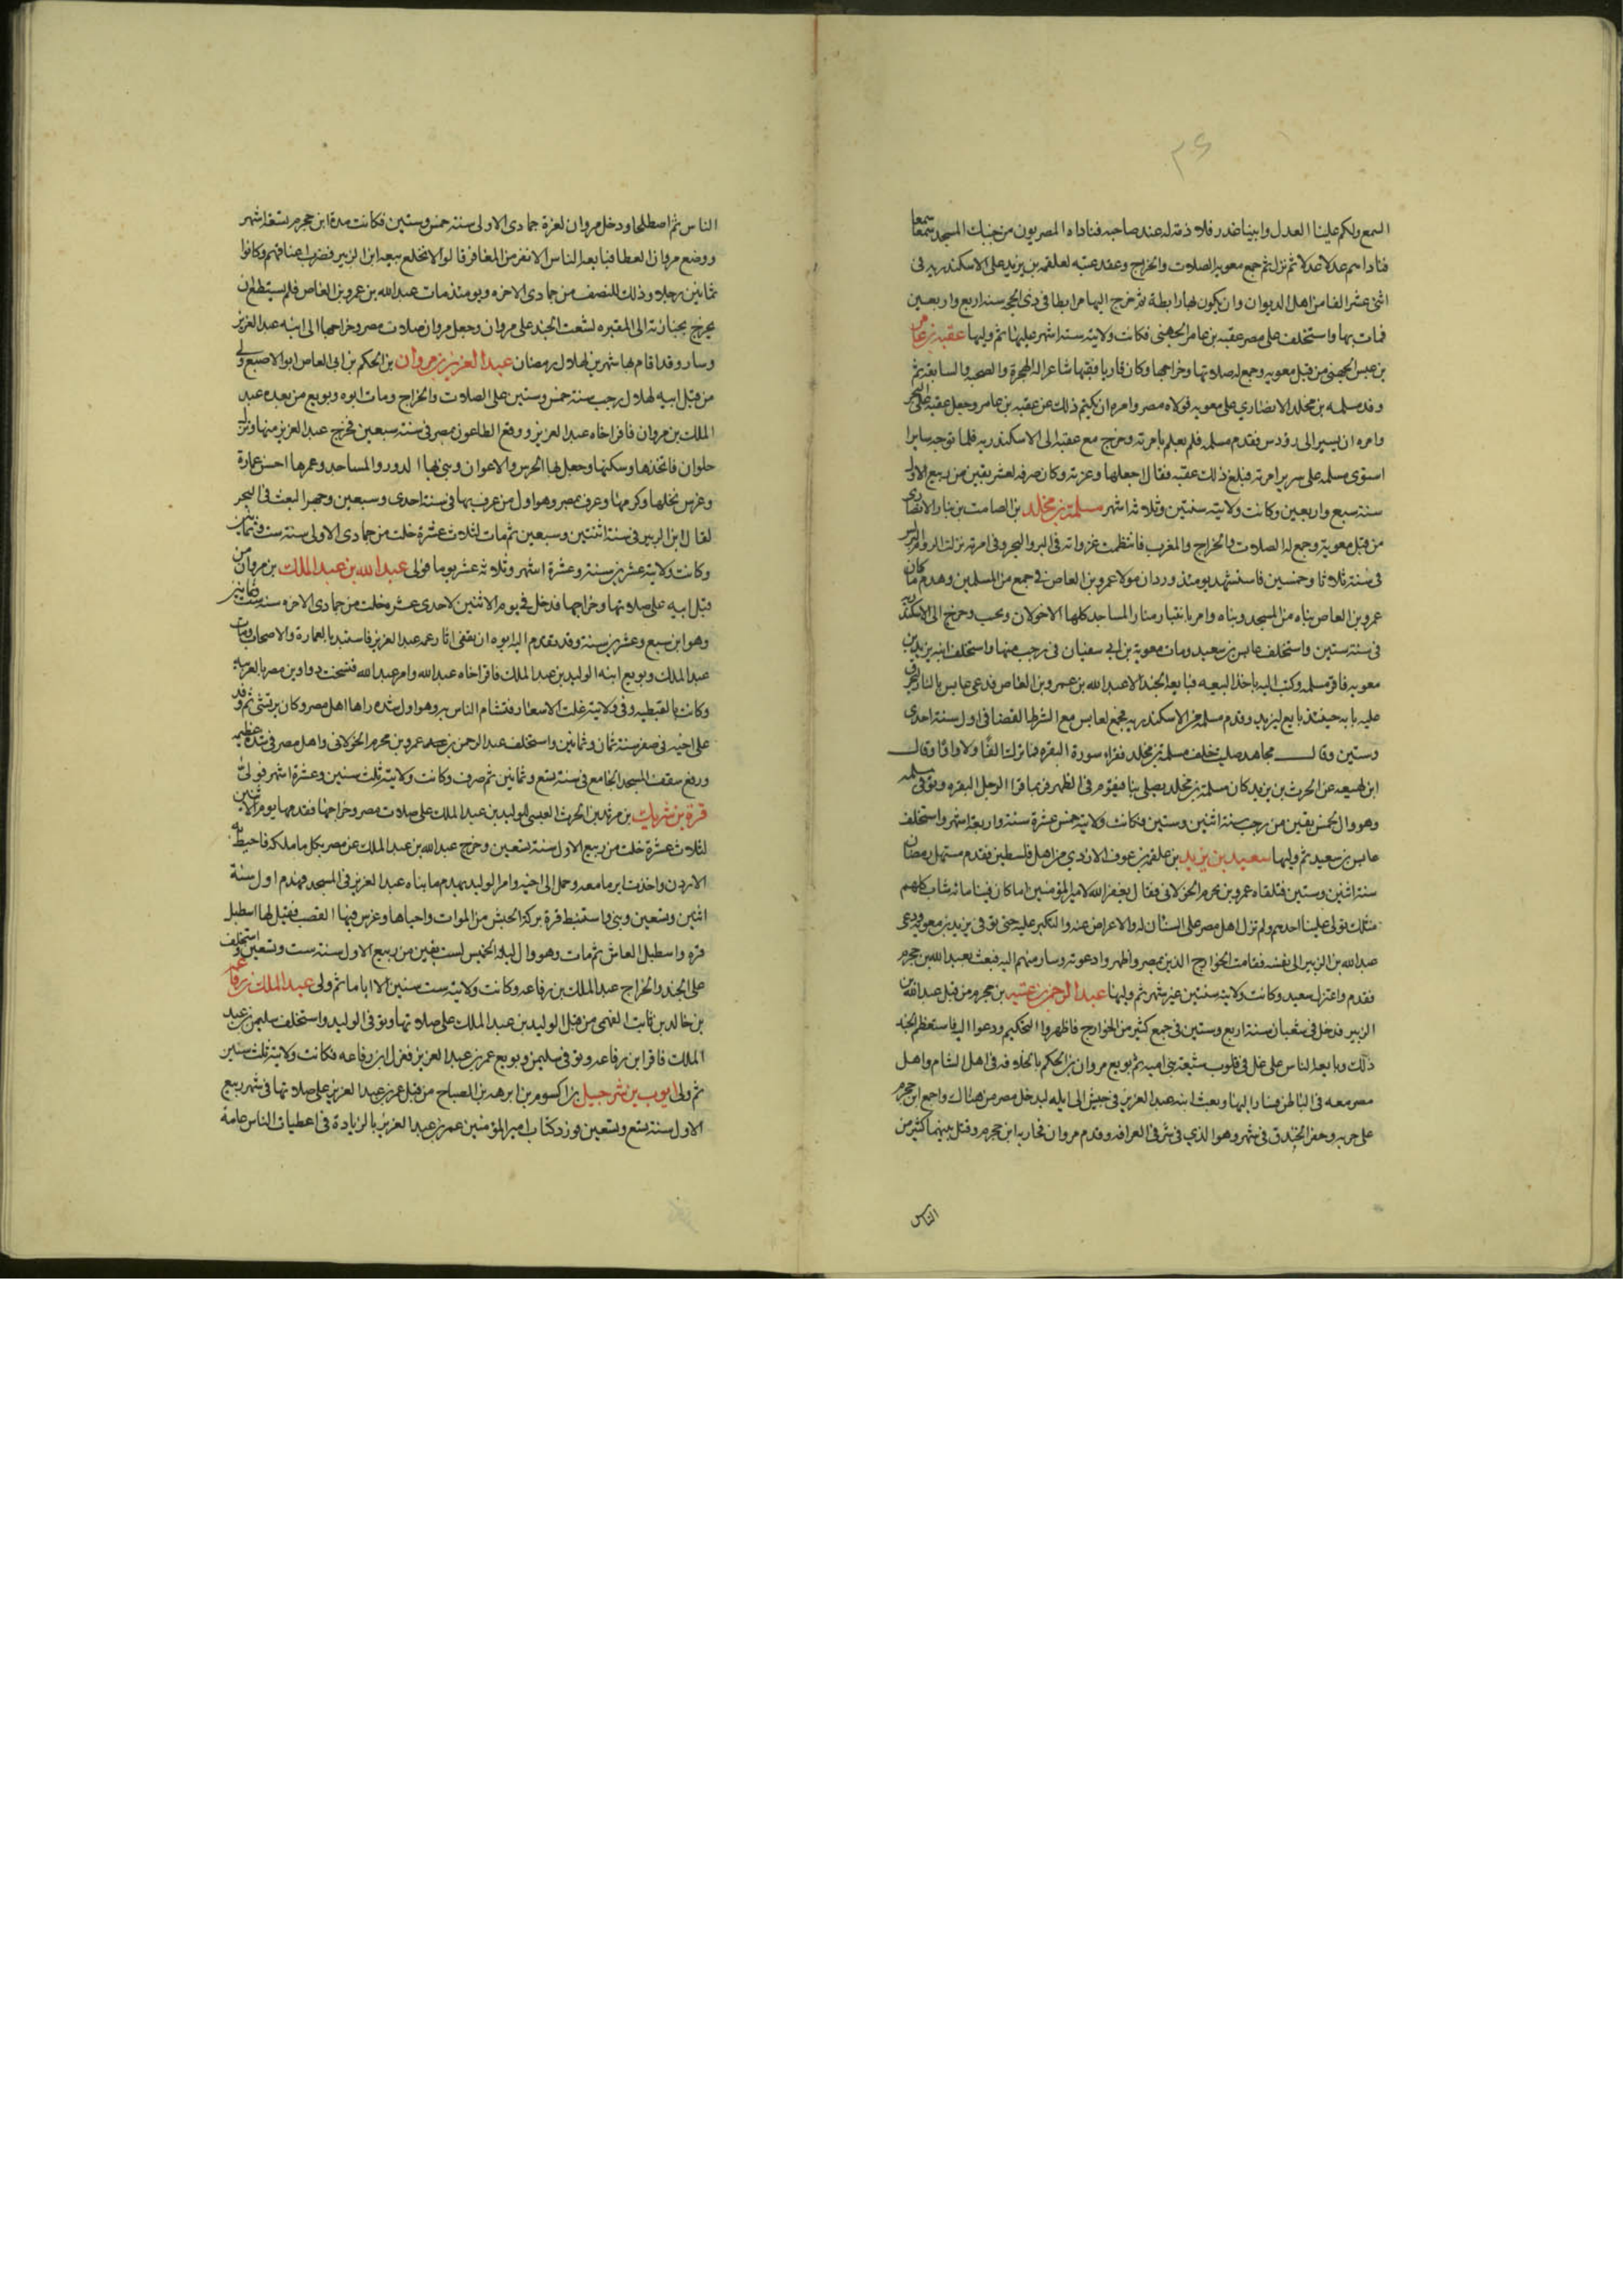 ٢٤
السمع ولكم علينا العدل واينا غدر فلا ذمة له عند صاحبه فناداه المصريون من جنبات المسجد سمعا سمعا
فناداهم عدلا عدلا ثم نزل ثم جمع معويه الصلات والخراج وعقد عتبه لعلقمه بن يزيد على الاسكندريه في
اثنى عشر الفا من اهل الديوان وان يكون لها رابطة ثم خرج اليها مرابطا في ذي الحجه سنه اربع واربعين
فمات بها واستخلف على مصر عقبه بن عامر الجهني فكانت ولايته سته اشهر عليها ثم وليها عقبه بن عامر
بن عبس الجهني من قبل معويه وجمع له صلاتها وخراجها وكان قاريا فقيها شاعرا له الهجرة والصحبه والسابقه ثم
وفد مسلمه بن مخلد الانصاري على معويه فولاه مصر وامره ان يكتم ذلك عن عقبه بن عامر وجعل عقبه على البحر
وامره ان يسير الى رودس فقدم مسلمه فلم يعلم بامرته وخرج مع عقبه الى الاسكندريه فلما توجه سايرا
استوى مسلمه على سرير امرته فبلغ ذلك عقبه فقال وكان صرفه لعشر بقين من ربيع الاول
سنه سبع واربعين وكانت ولايته سنتين وثلاثه اشهر مسلمة بن مخلد بن الصامت بن نيار الانصاري
من قبل معوية وجمع له الصلات والخراج والمغرب فانتظمت غزواته في البر والبحر وفي امرته نزلت الروم
في سنه ثلاث وخمسين فاستشهد يومئذ وردان مولا عمرو بن العاص في جمع من المسلمين وهدم ما كان
عمرو بن العاص بناه من المسجد وبناه وامر منار المساجد كلها الا خولان وتجيب وخرج الى الاسكندريه
في سنه ستين واستخلف عابس بن سعيد ومات معوية بن ابي سفيان في رجب منها واستخلف ابنه يزيد بن
معويه فاقر مسلمه وكتب اليه باخذ البيعه فبايعه الجند الا عبد الله بن عمرو بن العاص فدعى عابس بالنار ليحرق
عليه بابه حينئذ بايع ليزيد وقدم مسلمه من الاسكندريه فجمع لعابس مع الشرط القضا في اول سنه احدى
وستين وقال مجاهد صليت خلف مسلمة بن مخلد فقراء سورة البقره فما ترك الفا ولا واوا وقال
ابن لهيعه عن الحرث بن يزيد كان مسلمة بن مخلد يصلى بنا فيقوم في الظهر فربما قرا الرجل البقره وتوفي مسلمه
وهو وال لخمس بقين من رجب سنه اثنين وستين فكانت ولايته خمس عشرة سنه واربعه اشهر واستخلف
عابس بن سعيد ثم وليها سعيد بن يزيد بن علقمه بن عوف الازدي من اهل فلسطين فقدم مستهل رمضان
سنه اثنين وستين فتلقاه عمرو بن الخولاني فقال يغفر الله لامير المؤمنين اما كان فينا مائه شاب كلهم
مثلك تولى علينا احدهم ولم تزل اهل مصر على الشنان له والاعراض عنه والتكبر عليه حتى توفي يزيد بن معويه ودعى
عبد الله بن الزبير الى نفسه فقامت الخوارج الذين بمصر واظهروا دعوته وسار منهم اليه فبعث بعبد الرحمن بن جحدم
فقدم واعتزل سعيد وكانت ولايته سنتين غير شهر ثم وليها عبد الرحمن بن عتبه بن جحدم من قبل عبد الله بن
الزبير فدخل في شعبان سنة اربع وستين في جمع كثير من الخوارج فاظهروا التحكيم ودعوا اليه فاستعظم الجند
ذلك وبايعه الناس على غل في قلوب شيعة بني اميه ثم بويع مروان بن الحكم بالخلافه في اهل الشام واهل
مصر معه في الباطن فسار اليها وبعث ابنه عبد العزيز في جيش الى ايله ليدخل مصر من هناك واجمع ابن جحدم
على حربه وحفر الخندق في شهر وهو الذي في شرقي القرافه وقدم مروان فحاربه ابن جحدم وقتل بينهما كثير من
الناس
الناس ثم اصطلحا ودخل مروان لغرة جمادى الاولى سنه خمس وستين فكانت مدة ابن جحدم تسعه اشهر
ووضع مروان العطا فبايعه الناس الا نفر من المغافر قالوا لا نخلع بيعه ابن الزبير فضرب اعناقهم وكانوا
ثمانين رجلا وذلك للنصف من جمادى الاخره ويومئذ مات عبد الله بن عمرو بن العاص فلم يستطع ان
يخرج بجنازته الى المقبره لشغب الجند على مروان وجعل مروان صلات مصر وخراجها الى ابنه عبد العزيز
وسار وقد اقام بها شهرين لهلال رمضان عبد العزيز بن مروان بن الحكم بن ابي العاص ابو الاصبغ ولي
من قبل ابيه لهلال رجب سنة خمس وستين على الصلات والخراج ومات ابوه وبويع من بعده عبد
الملك بن مروان فاقر اخاه عبد العزيز ووقع الطاعون بمصر في سنة سبعين فخرج عبد العزيز منها ونزل
حلوان فاتخذها وسكنها وجعل بها الحرس والاعوان وبني بها الدور والمساجد وعمرها احسن عمارة
وغرس نخلها وكرمها وعرف بمصر وهو اول من عرف بها في سنة احدى وسبعين وجهز البعث في البحر
لقتال ابن الزبير في سنة اثنتين وسبعين ثم مات لثلاث عشرة خلت من جمادى الاولى سنة ست وثمانين
وكانت ولايته عشرين سنة وعشرة اشهر وثلاثه عشر يوما فولي عبد الله بن عبد الملك بن مروان من
قبل ابيه على صلاتها وخراجها فدخل في يوم الاثنين لاحدى عشره خلت من جمادى الاخره سنه ست وثمانين
وهو ابن سبع وعشرين سنة وقد تقدم اليه ابوه ان يقفي اثار عمه عبد العزيز فاستبدل بالعمال والاصحاب ومات
عبد الملك وبويع ابنه الوليد بن عبد الملك فاقر اخاه عبد الله وامر عبد الله فنسخت دواوين مصر بالعربيه
وكانت بالقبطيه وفي ولايته غلت الاسعار فتشام الناس به وهو اول شده راها اهل مصر وكان يرتشي ثم وفد
على اخيه في صفر سنة ثمان وثمانين واستخلف عبد الرحمن بن عمرو بن الخولاني واهل مصر في شدة عظيمه
ورفع سقف المسجد الجامع في سنة تسع وثمانين ثم صرف وكانت ولايته ثلث سنين وعشرة اشهر فولي
قرة بن شريك بن مرثد بن الحرث العبسي للوليد بن عبد الملك على صلات مصر وخراجها فقدمها يوم الاثنين
لثلاث عشرة خلت من ربيع الاول سنة تسعين وخرج عبد الله بن عبد الملك عن مصر بكل ما ملكه فاحيط به
الاردن واخذ سائر ما معه وحمل الى اخيه وامر الوليد بهدم ما بناه عبد العزيز في المسجد فهدم اول سنة
اثنين وتسعين وبنى واستنبط قرة بركة الحبش من الموات واحياها وغرس فيها القصب فقيل لها اسطبل
قره واسطبل القاش ثم مات وهو وال ليلة الخميس لست بقين من ربيع الاول سنه ست وتسعين واستخلف
على الجند والخراج عبد الملك بن رفاعه وكانت ولايته ست سنين الا اياما ثم ولي عبد الملك بن رفاعه
بن خالد بن ثابت الفهمي من قبل الوليد بن عبد الملك على صلاتها وتوفي الوليد واستخلف سليمن بن عبد
الملك فاقر ابن رفاعه وتوفي سليمن وبويع عمر بن عبد العزيز فعزل ابن رفاعه فكانت ولايته ثلث سنين
ثم ولي ايوب بن شرحبيل بن اكسوم بن ابرهه بن الصباح من قبل عمر بن عبد العزيز على صلاتها في شهر ربيع
الاول سنة تسع وتسعين فورد كتاب امير المؤمنين عمر بن عبد العزيز بالزيادة في اعطيات الناس عامة